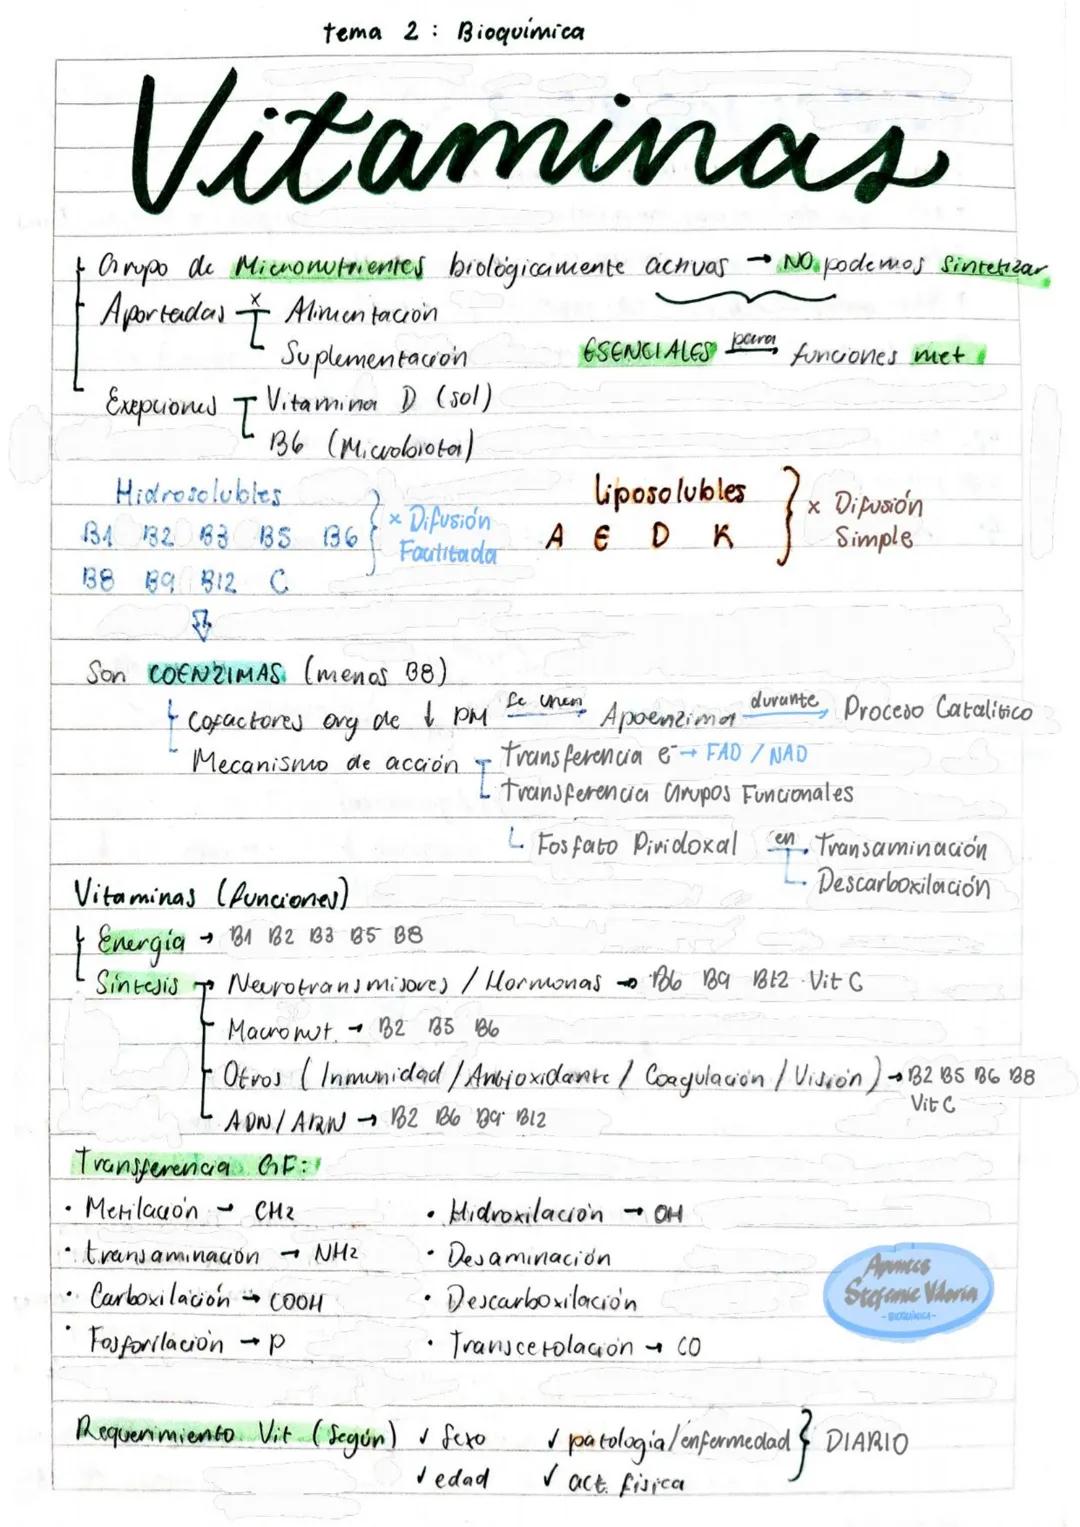 tema 2 : Bioquímica
Vitaminas
Grupo de Micronutrientes biológicamente activas → NO podemos Sintetizar
Aportadas x Alimentación
Suplementación
ESENCIALES para funciones met
Exepciones Vitamina D (sol)
B6 (Microbiota)
Hidrosolubles
B1 B2 B3 B5 B6
B8 B9 B12 C
x Difusión
Facilitada
Liposolubles
A E D K
x Difusión
Simple
Son COENZIMAS (menos B8)
Cofactores org de ↓ PM Se unen Apoenzima durante Proceso Catalítico
Mecanismo de acción Transferencia e⁻ → FAD / NAD
Transferencia Grupos Funcionales
Fosfato Piridoxal en Transaminación
Descarboxilación
Vitaminas (funciones)
Energía → B1 B2 B3 B5 B8
Síntesis Neurotransmisores / Hormonas → B6 B9 B12 Vit C
Macronut. → B2 B5 B6
Otros (Inmunidad / Antioxidante / Coagulación / Visión) → B2 B5 B6 B8
Vit C
ADN / ARN → B2 B6 B9 B12
Transferencia GF:
· Metilación → CH2
· transaminación → NH2
· Carboxilación → COOH
· Fosforilación → P
· Hidroxilación → OH
· Desaminación
· Descarboxilación
· Transcetolación → CO
Apuntes
Stefanie Viloria
- BIOQUÍMICA -
Requerimiento Vit (Según) ✓ Sexo ✓ patología/enfermedad } DIARIO
✓ edad ✓ act. física